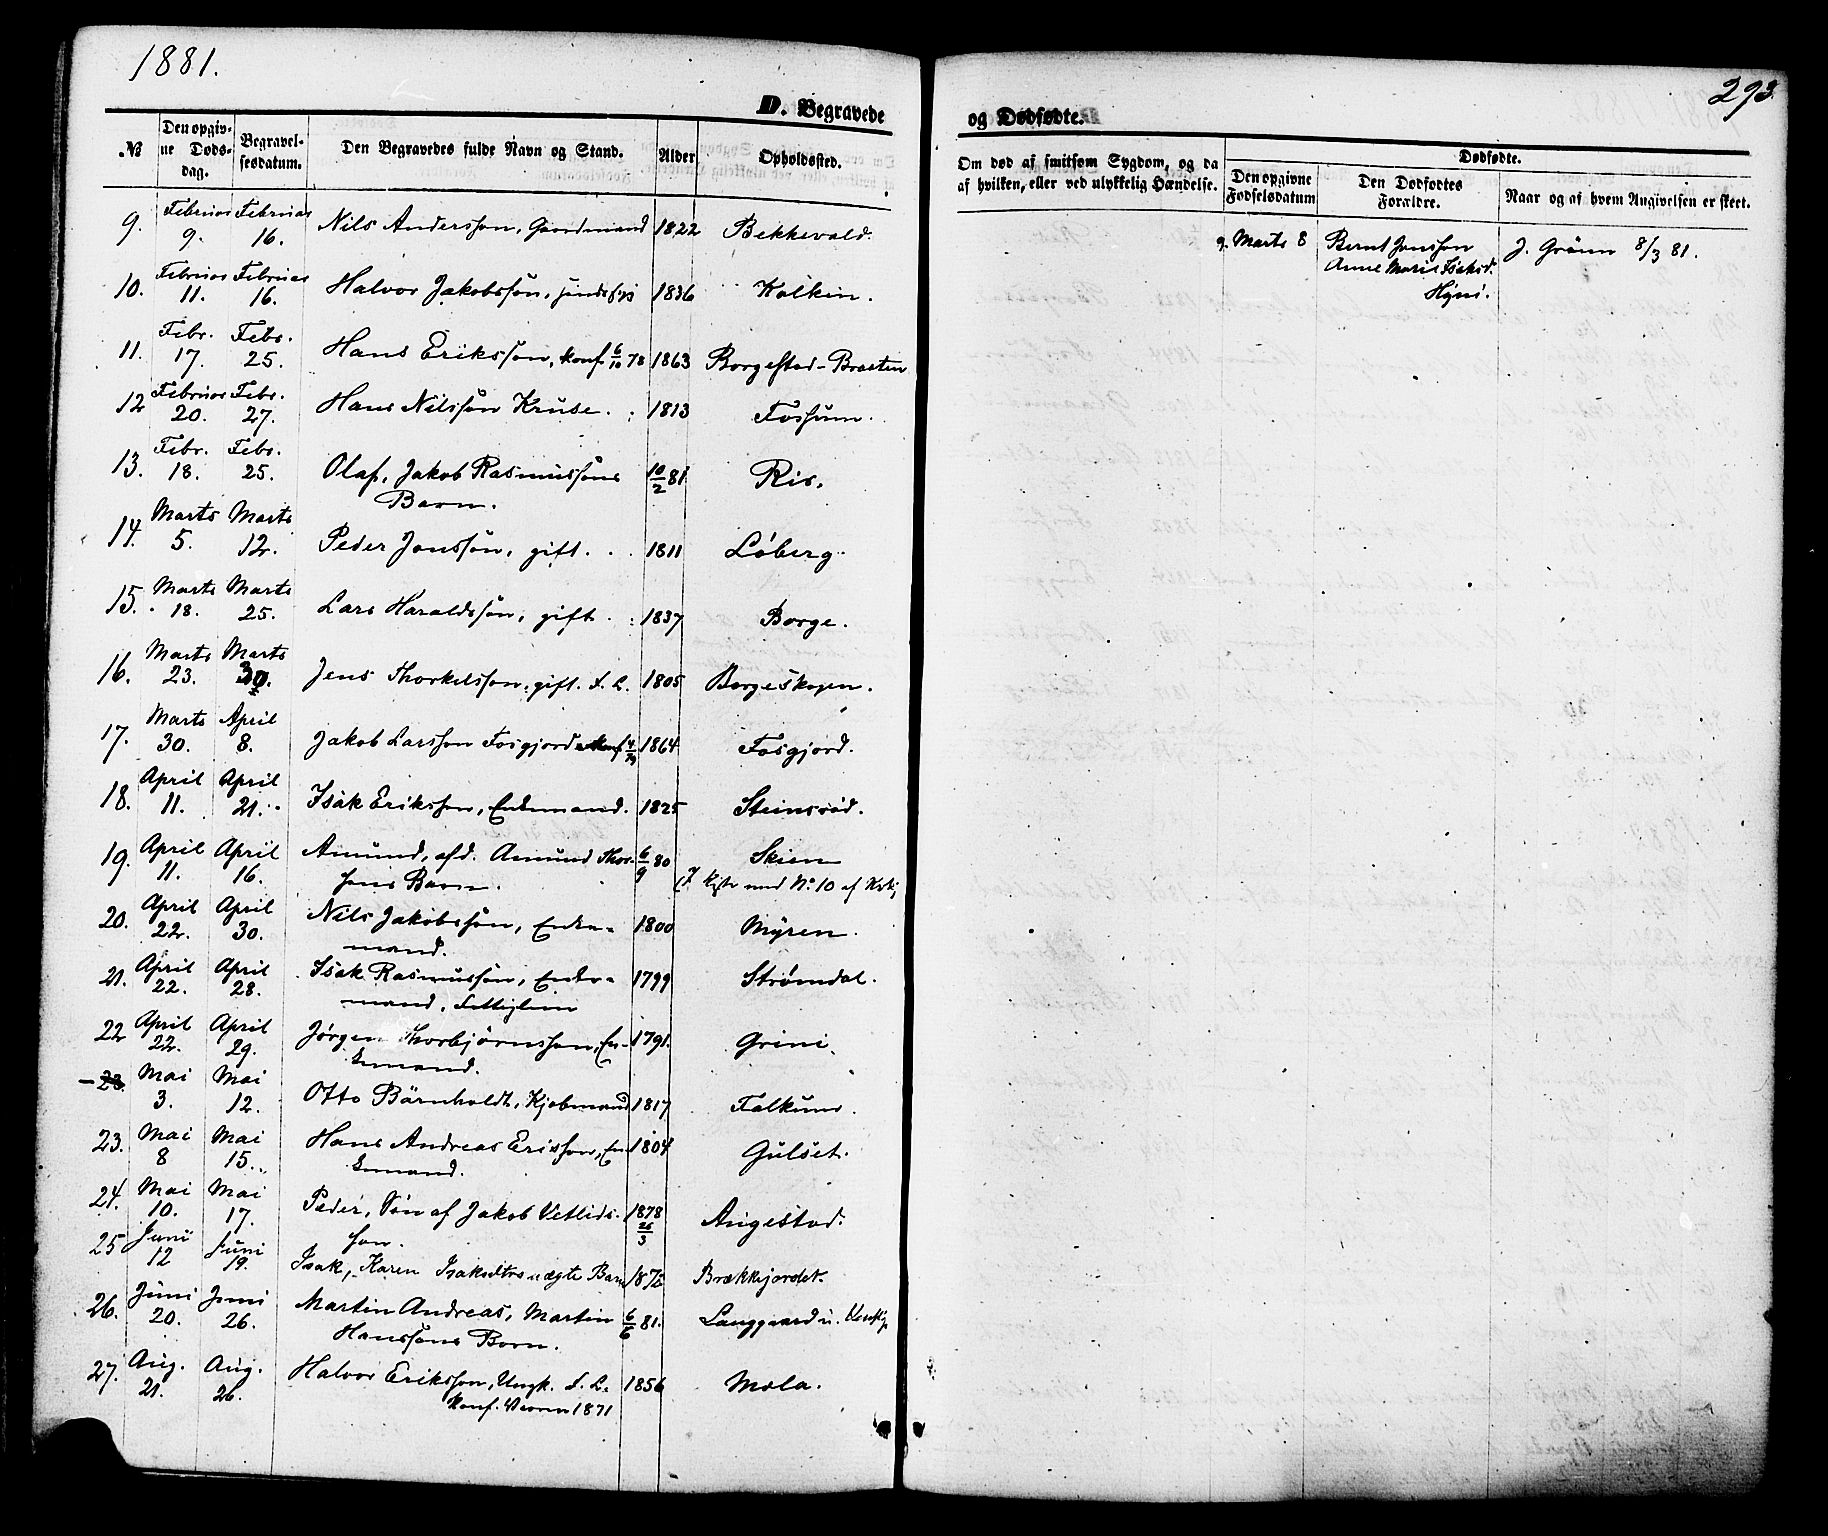 1881.
293.
D. Begravede
og Dødfødte.
№
Den opgivne Dødsdag.
Begravelsesdatum.
Den Begravedes fulde Navn og Stand.
Alder
Opholdssted.
Om død af smitsom Sygdom, og da af hvilken, eller ved ulykkelig Hændelse.
Dødfødte.
Den opgivne Fødselsdatum
Den Dødfødtes Forældre.
Naar og af hvem Angivelsen er skeet.
9. Februar 9. Februar 16. Nils Anderssøn, Gaardmand 1822 Bekkevold.
Marts 8 Bernt Jonssøn J. Grinin 8/3 81.
Anne Marie Isaksd.
Hyni.
10. Februar 11. Februar 16. Halvor Jakobssøn, 1836 Kolkin.
11. Febr. 17. Febr. 25. Hans Erikssøn, konf 6/10 78 1863 Borgestad-Braaten
12 Februar 20. Febr. 27. Hans Nilssøn Kruse. 1813 Fossum.
13. Febr. 18. Febr. 25. Olaf, Jakob Rasmussøns 10/2 81 Ris.
Barn.
14. Marts 5. Marts 12. Peder Jonssøn, gift. 1811 Løberg.
15. Marts 18. Marts 25. Lars Haraldssøn, gift. 1837 Borge.
16. Marts 23. Marts 30. Jens Thorkelssøn, gift. F. L. 1805 Borgeskogen.
17. Marts 30. April 8. Jakob Larssøn Fosgjord konf 4/79 1864 Fosgjord.
18. April 11. April 21. Isak Erikssøn, Enkemand. 1825 Steinsrød.
19. April 11. April 16. Amund, afd. Amund Thor- 6/9 80 Skien
sens Barn. med No 10 af
20. April 22. April 30. Nils Jakobssøn, Enke- 1800 Myren.
mand.
21. April 22. April 28. Isak Rasmussøn, Enke- 1799 Strømdal.
mand, Fattiglem
22 April 22. April 29. Jørgen Thorbjørnssøn, En- 1791. Grini.
kemand.
23. Mai 3. Mai 12. Otto Bärnholdt, Kjøbmand 1817 Falkum.
23. Mai 8 Mai 15. Hans Andreas Erikssøn, En- 1804 Gulset.
kemand.
24. Mai 10. Mai 17. Peder, Søn af Jakob Vetlids- 1878 26/3 Aagestad.
søn.
25 Juni 12 Juni 19. Isak, Karen Isaksdtrs uægte Barn 1875 Brækkejordet.
26. Juni 20. Juni 26. Martin Andreas, Martin 6/6 81. Langgaard u.
Hanssøns Barn.
27. Aug. 21. Aug. 26. Halvor Erikssøn, Ungk. F. L. 1856 Mæla.
konf. Vaaren 1871